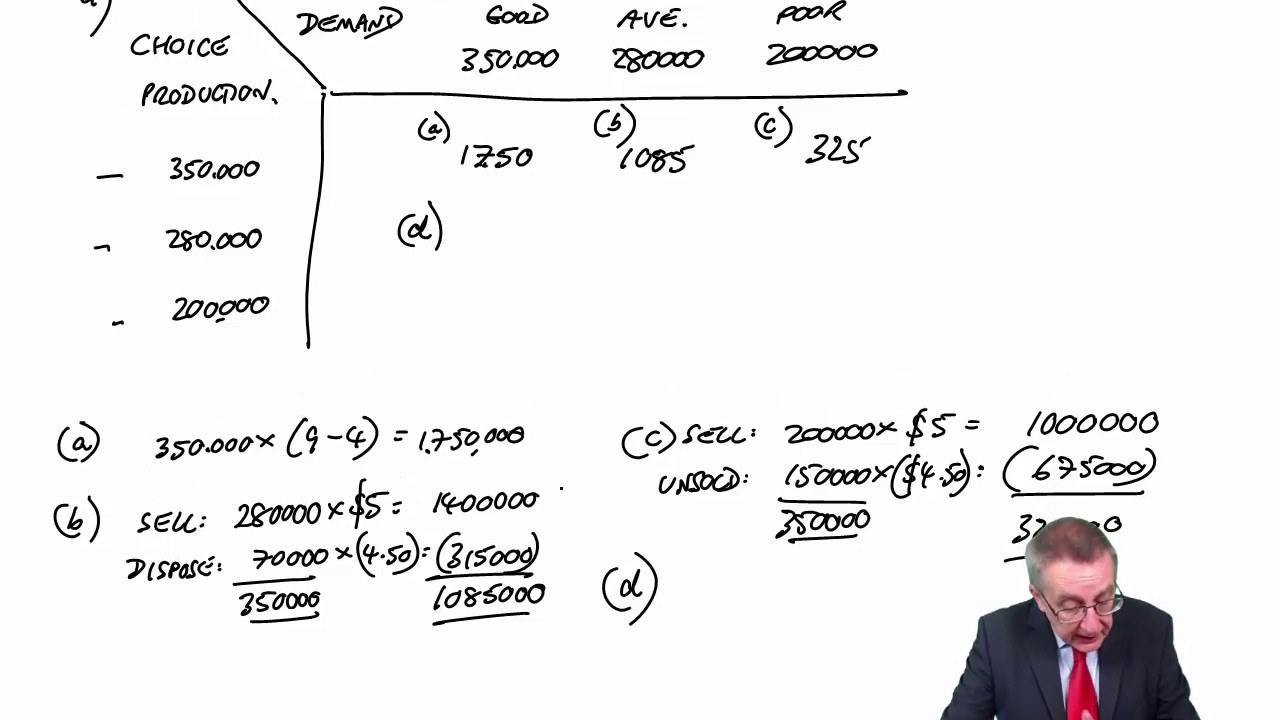 a)
DEMAND GOOD AVE. POOR
CHOICE 350.000 280000 200000
PRODUCTION.
(a) 1750 (b) 1085 (c) 325
— 350.000
(d)
- 280.000
- 200000
(a) 350.000 × (9-4) = 1.750,000
(b) SELL: 280000 × $5 = 1400000
DISPOSE: 70000 × (4.50): (315000)
350000 1085000
(c) SELL: 200000 × $5 = 1000000
UNSOLD: 150000 × ($4.50): (675000)
350000
(d)